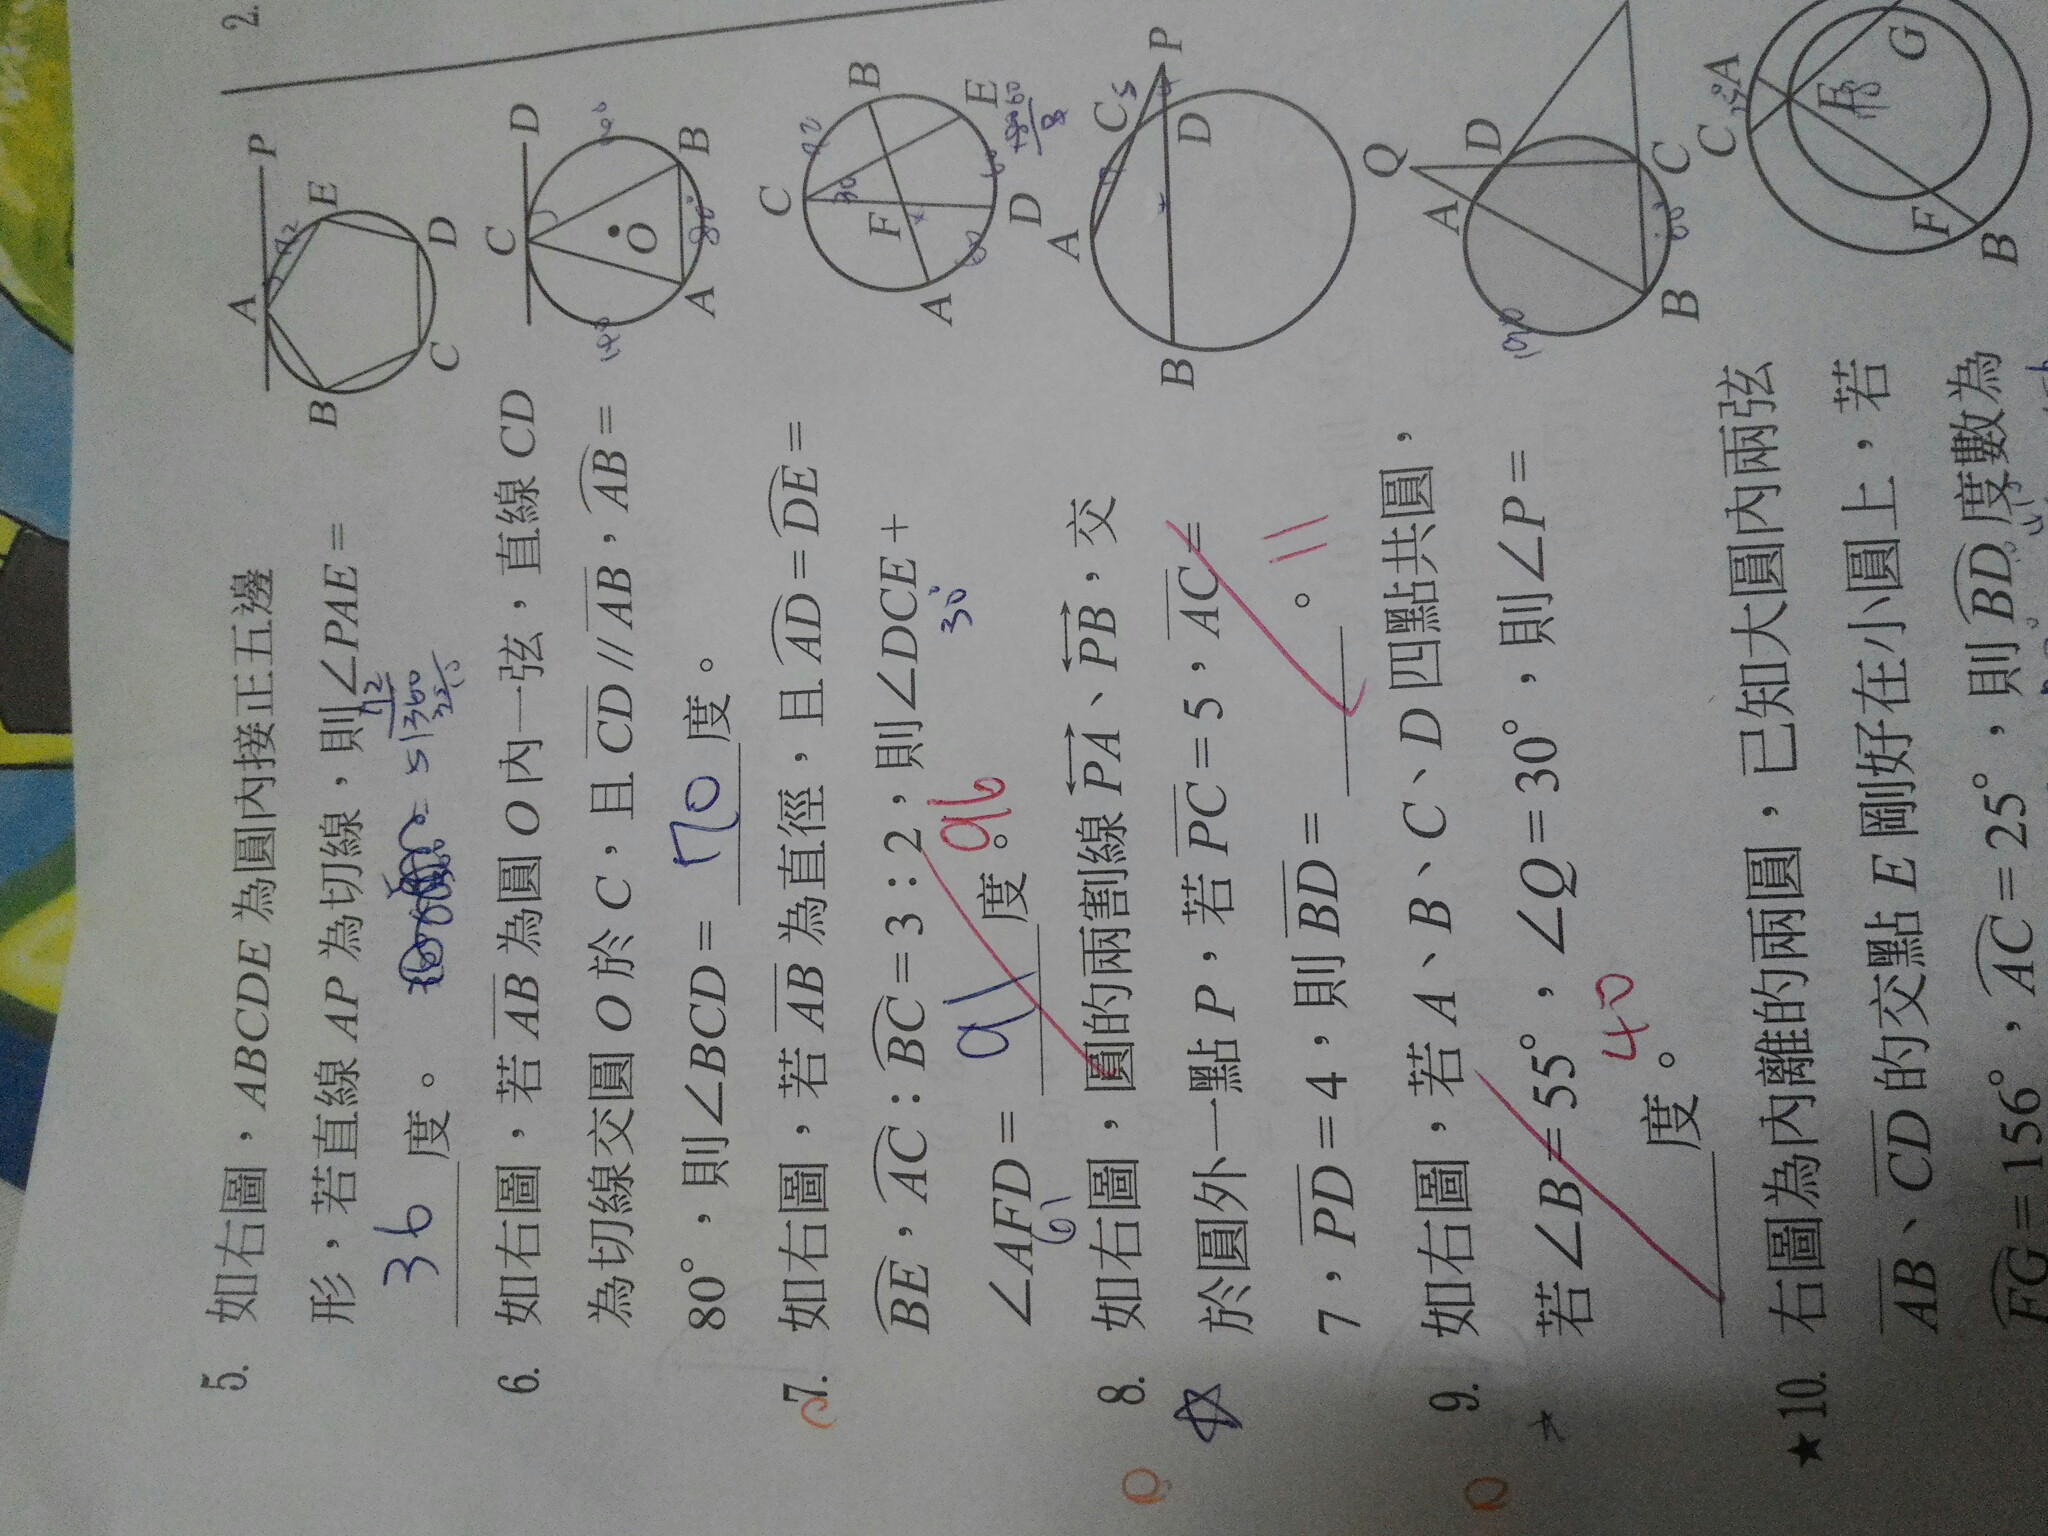 2.
5. 如右圖，ABCDE 為圓內接正五邊
形，若直線 AP 為切線，則∠PAE=
36 度。
72
5)360
6. 如右圖，若 AB 為圓 O 內一弦，直線 CD
為切線交圓 O 於 C，且 CD // AB，AB=
80°，則∠BCD= 70 度。
7. 如右圖，若 AB 為直徑，且 AD=DE=
BE，AC：BC=3：2，則∠DCE+
30°
∠AFD= 91 度。 96
61
8. 如右圖，圓的兩割線 PA、PB，交
於圓外一點 P，若 PC=5，AC=
7，PD=4，則 BD= 。 11
9. 如右圖，若 A、B、C、D 四點共圓，
若∠B=55°，∠Q=30°，則∠P=
度。 40
★10. 右圖為內離的兩圓，已知大圓內兩弦
AB、CD 的交點 E 剛好在小圓上，若
FG=156°，AC=25°，則 BD 度數為
A P B E C D
72
C D O A B
80°
C B F E A D
72 30 60 60
A C P D B
5
Q A D B C
C A E G F B